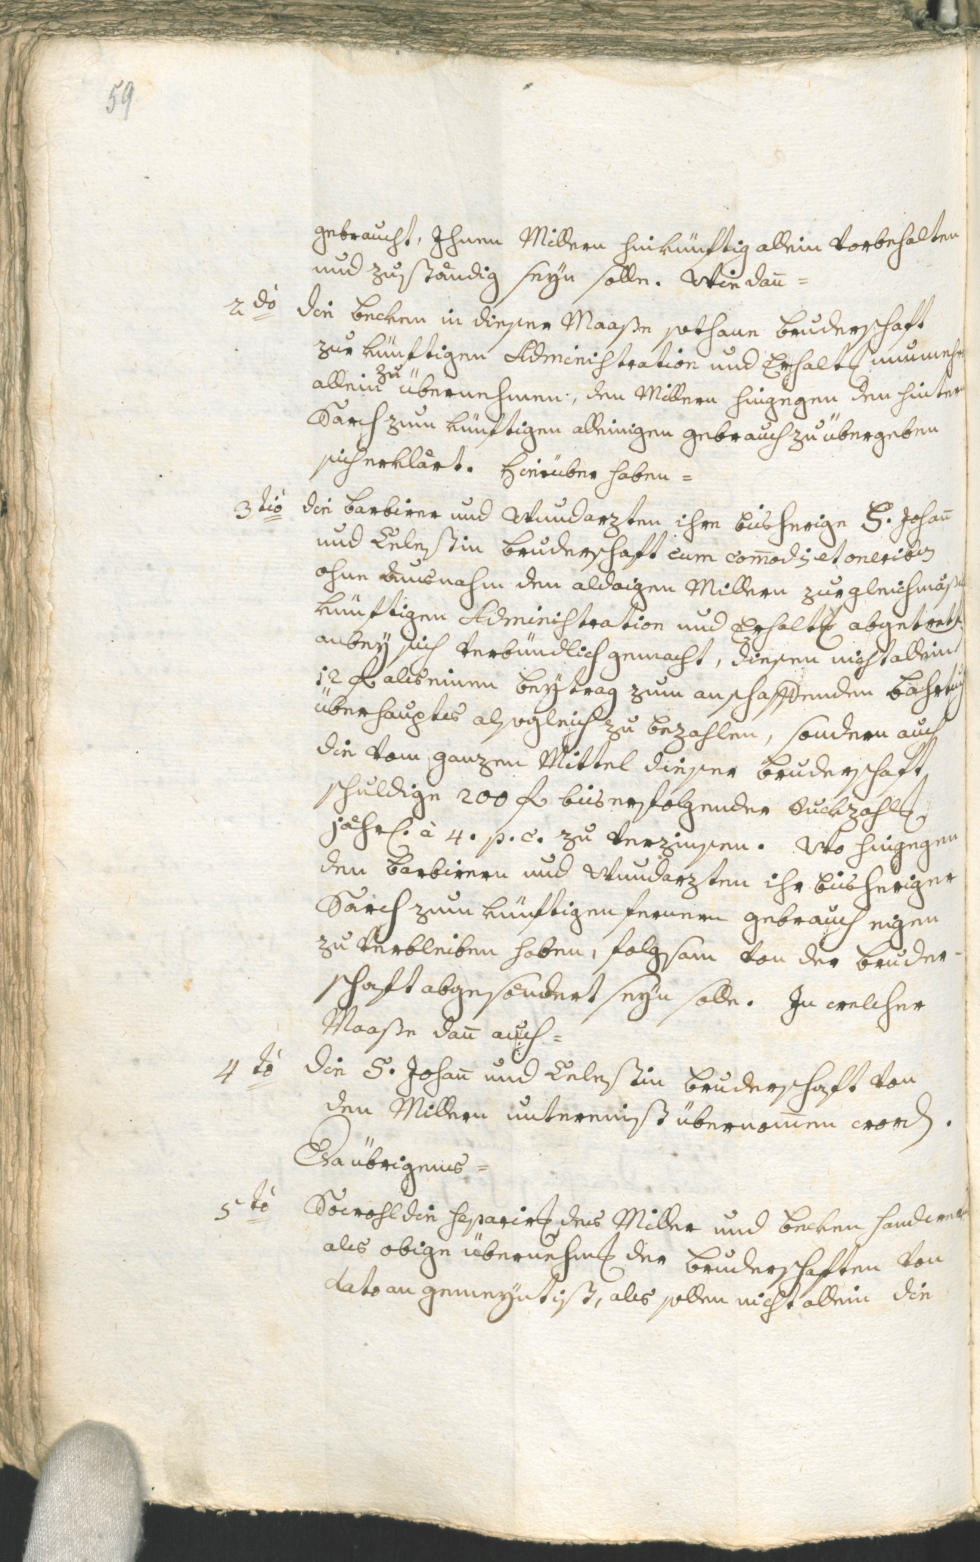 59
gebraucht, Ihnen Millern hinkünftig allein vorbehalten
und zuständig seyn solle. Wie dan̄ =
2 do die becken in dieser Maaße sothane bruderschaft
zur künftigen Administration und Erhalt: nunmehr
allein zu übernehmen, den Millern hingegen den hintern
Sarch zum künftigen alleinigen gebrauch zu übergeben
sich erklärt. Hierüber haben =
3 tio die barbirer und Wundarzten ihre bisherige S. Johan̄
und Celestin bruderschaft cum com̄odis et oneribus
ohne Ausnahm den aldaigen Millern zur gleichmäßi
künftigen Administration und Erhalt: abgetrett:
anbey sich verbündlich gemacht, diesen nicht allein
12 f als einen beytrag zum anschaffenden bahrtuch
überhaupts alsogleich zu bezahlen, sondern auch
die vom ganzen Mittel dieser bruderschaft
schuldige 200 f bis erfolgender Ruckzahl:
jährl. à 4. p. c. zu verzinsen. Wo hingegen
den barbirern und Wundarzten ihr bisheriger
Sarch zum künftigen fernern gebrauch eigen
zu verbleiben haben, folgsam von der bruder-
schaft abgesöndert seyn solle. In welcher
Maaße dan̄ auch =
4 to die S. Johan̄ und Celestin bruderschaft von
den Millern untereinst übernom̄en word.
Da übrigens =
5 to Sowohl die separir: des Miller und becken handwerks
als obige übernehm: der bruderschaften von
dato an gemeynt ist, als sollen nicht allein die